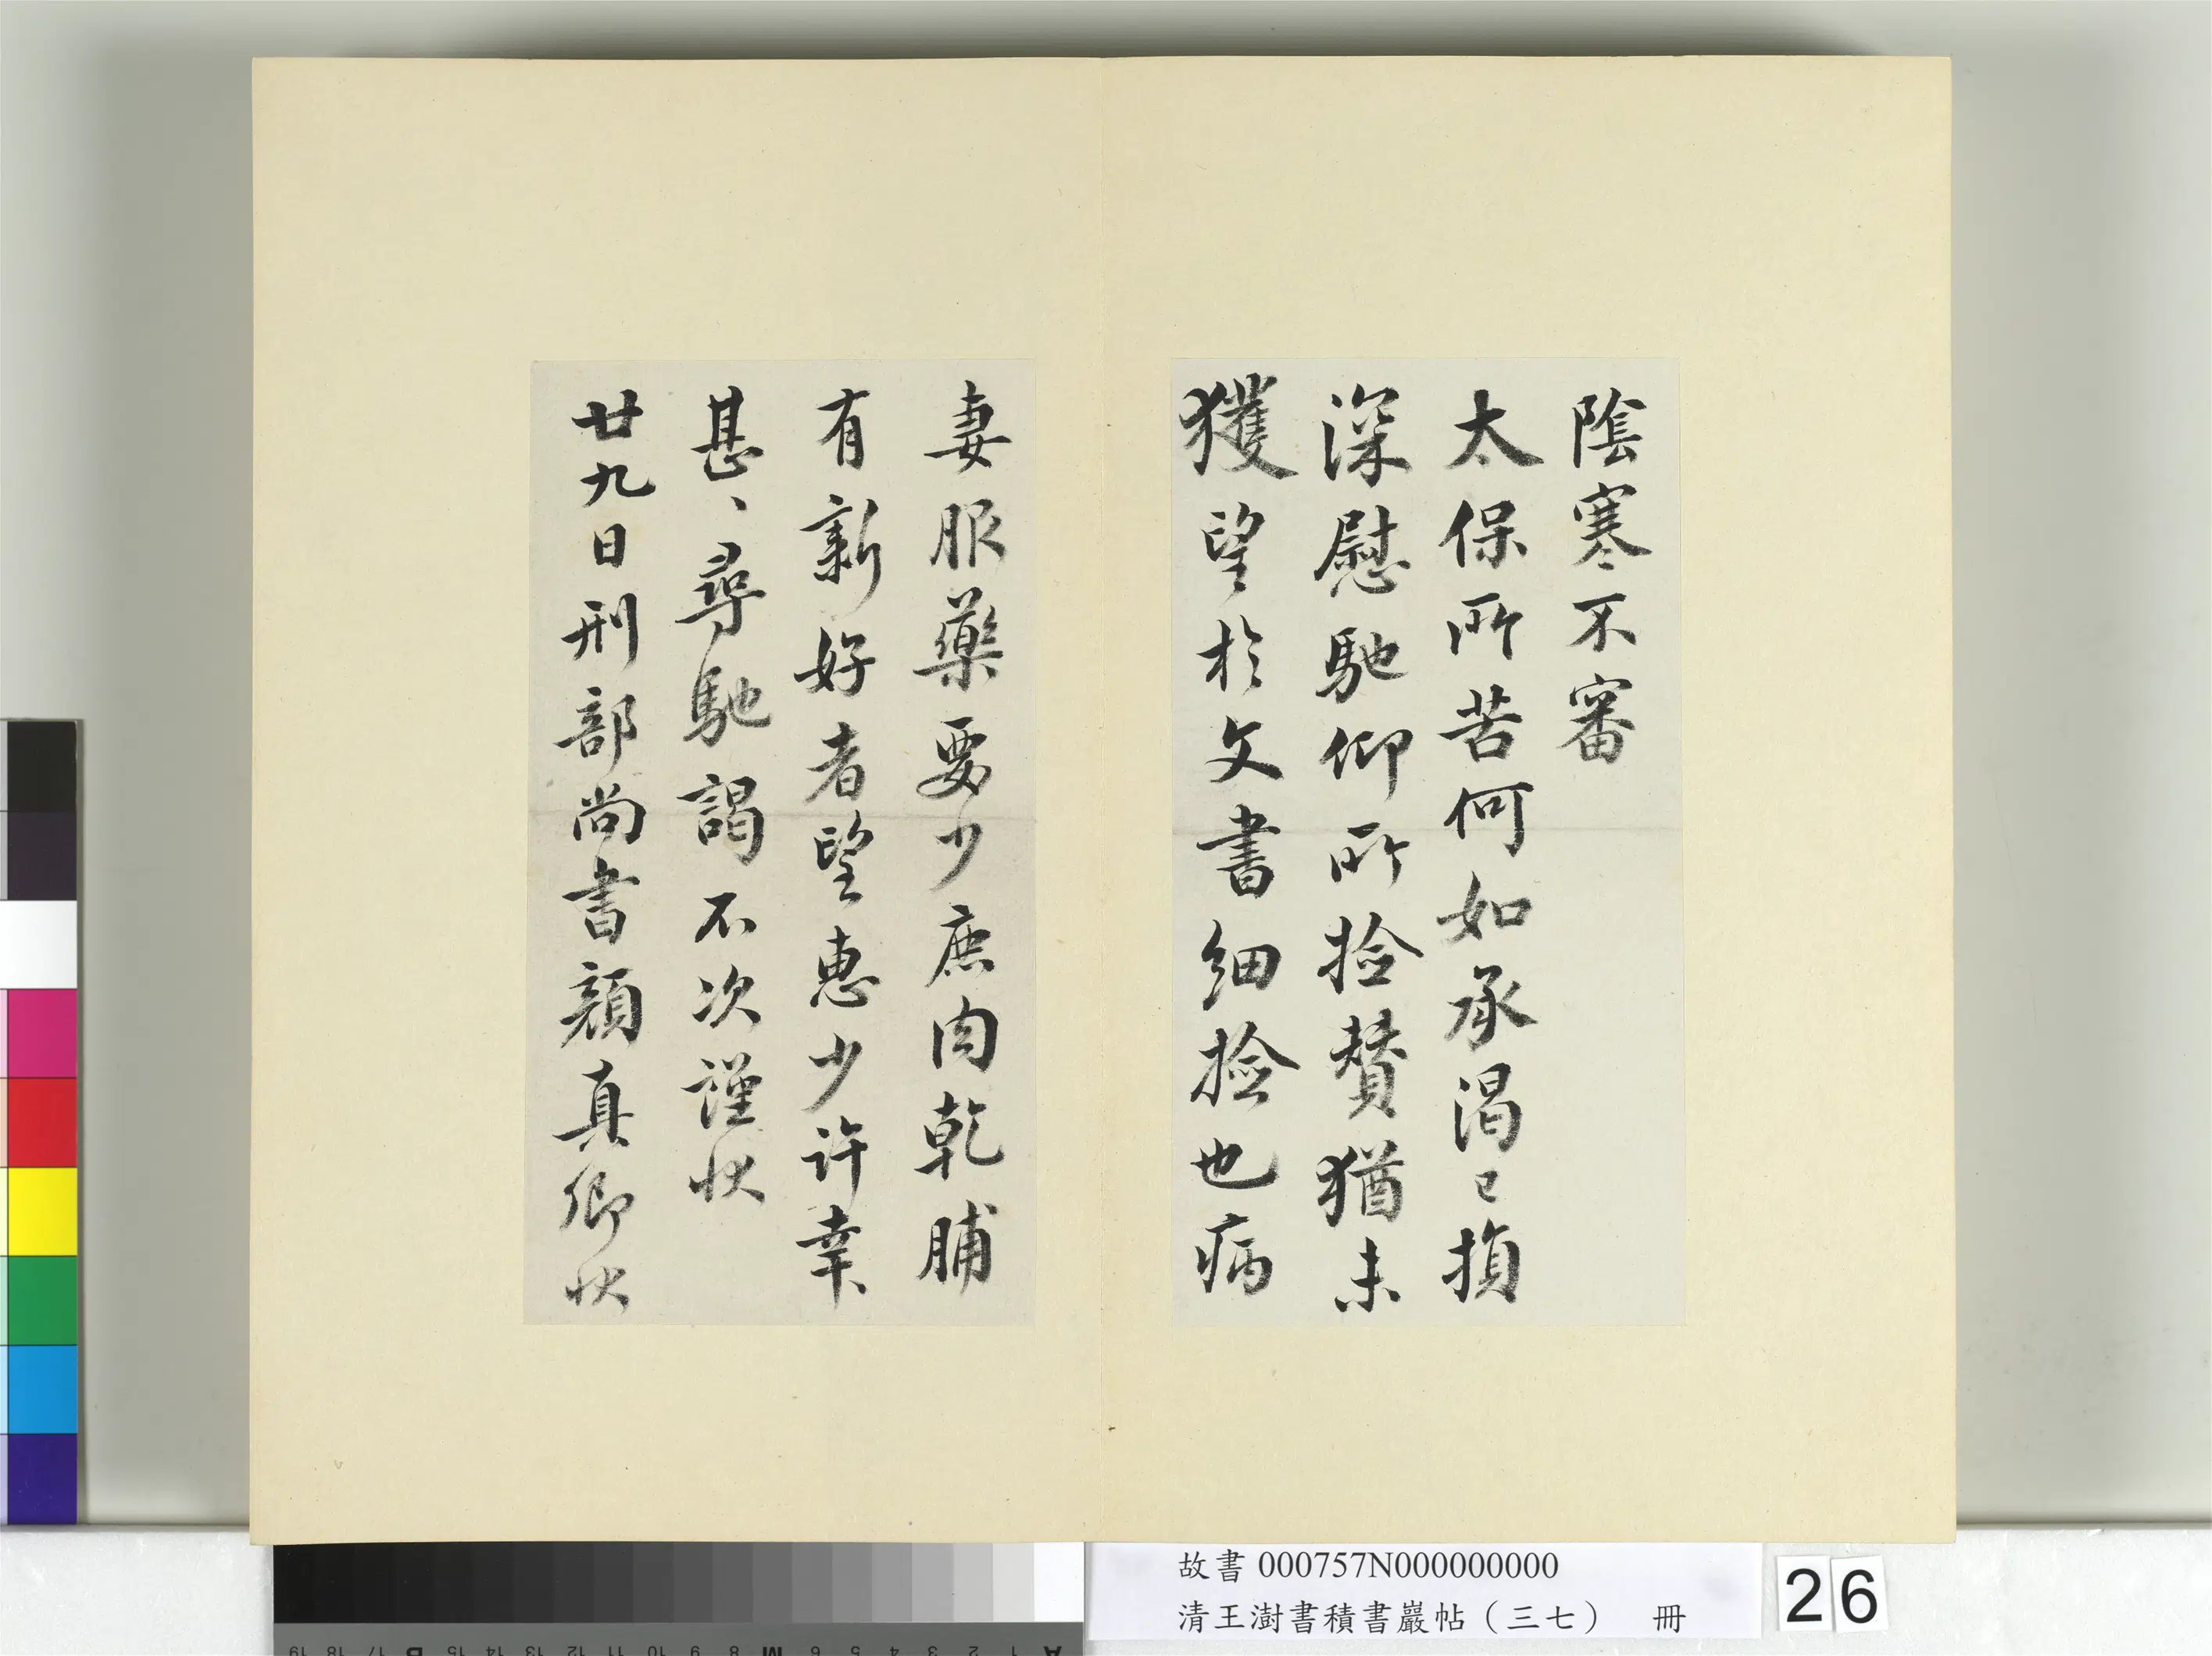 陰寒不審
太保所苦何如承渴已損
深慰馳仰所撿贊猶未
獲望於文書細撿也病
妻服藥要少鹿肉乾脯
有新好者望惠少許幸
甚、尋馳謁不次謹狀
廿九日刑部尚書顏真卿狀
故書000757N000000000
清王澍書積書巖帖（三七） 冊
26